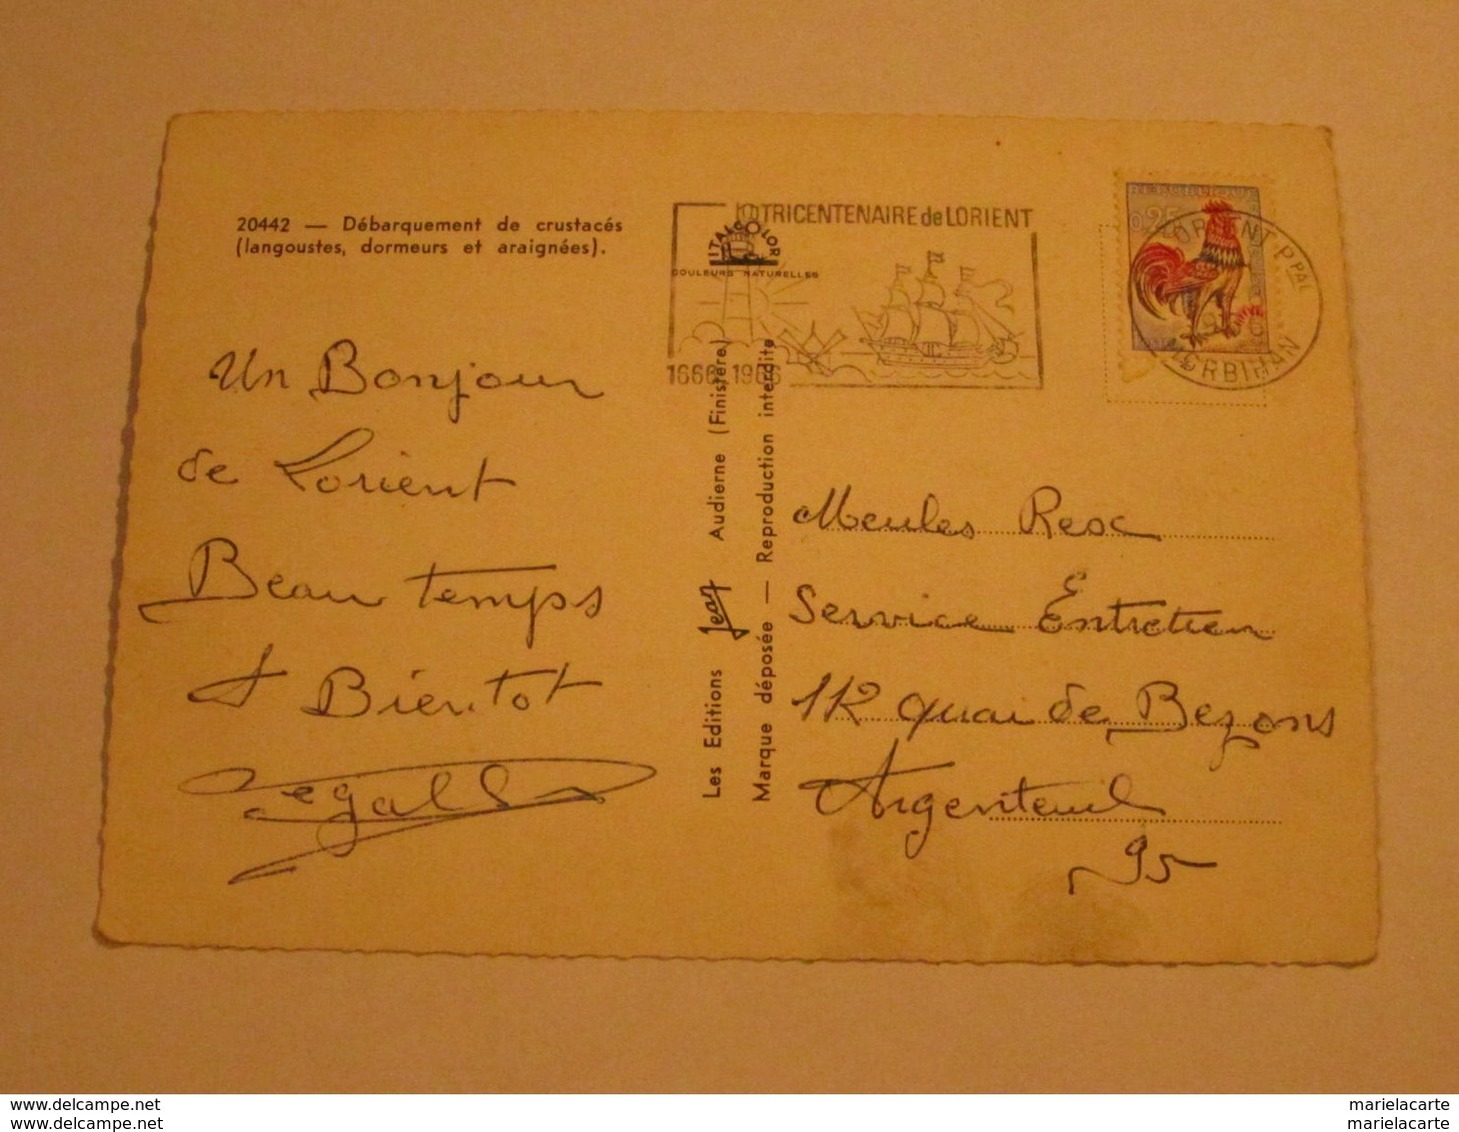 20442 — Débarquement de crustacés
(langoustes, dormeurs et araignées).
TRICENTENAIRE de LORIENT
ITALCOLOR
COULEURS NATURELLES
1666 1966
0,25
LORIENT PPAL
MORBIHAN
Un Bonjour
de Lorient
Beau temps
A Bientot
Les Editions Jean Audierne (Finistère)
Marque déposée — Reproduction interdite
Meules
Service Entretien
112 quai de Bezons
Argenteuil
95
mariel­acarte
mariel­acarte